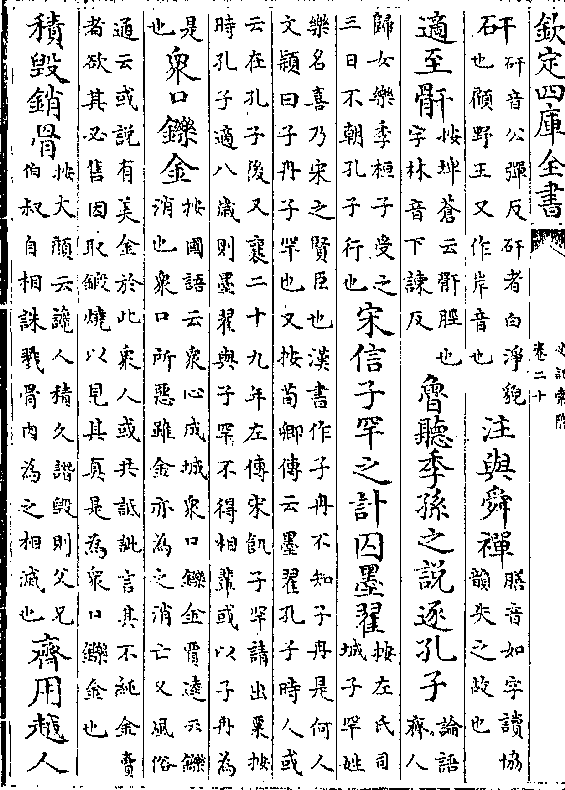 欽定四庫全書
史記索隱
卷二十
矸矸音公彈反矸者白淨貌
石也顧野王又作岸音也
注與舜禪
膳音如字讀協
韻失之故也
適至骭
按埤蒼云骭脛也
字林音下諫反
魯聽季孫之說逐孔子
論語
齊人
歸女樂季桓子受之
三日不朝孔子行也
宋信子罕之計囚墨翟
按左氏司
城子罕姓
樂名喜乃宋之賢臣也漢書作子冉不知子冉是何人
文穎曰子冉子罕也又按荀卿傳云墨翟孔子時人或
云在孔子後又襄二十九年左傳宋飢子罕請出粟按
時孔子適八歲則墨翟與子罕不得相輩或以子冉為
是
也
衆口鑠金
按國語云衆心成城衆口鑠金賈逵云鑠
消也衆口所惡雖金亦為之消亡又風俗
通云或說有美金於此衆人或共詆訿言其不純金賣
者欲其必售因取鍛燒以見其真是為衆口鑠金也
積毀銷骨
按大顏云讒人積久譖毀則父兄
伯叔自相誅戮骨肉為之相滅也
齊用越人